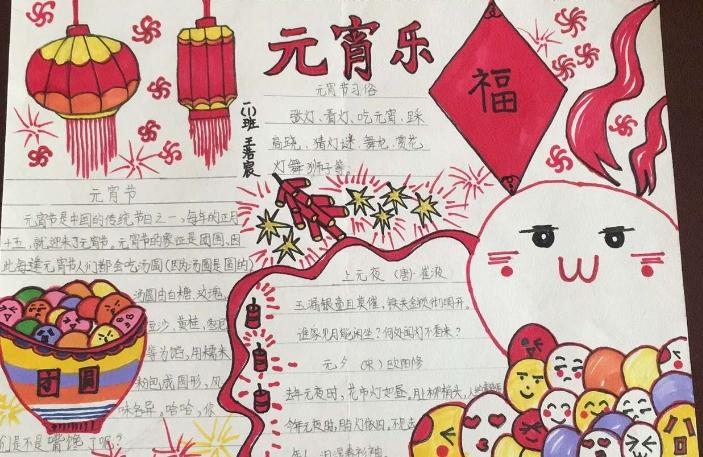 元宵乐
福
一(1)班 王若宸
元宵节习俗
歌灯、看灯、吃元宵、踩
高跷、猜灯谜、舞龙、赏花
灯舞狮子等。
元宵节
元宵节是中国的传统节日之一,每年的正月
十五,就迎来了元宵节。元宵节的象征是团圆,因
此每逢元宵节人们都会吃汤圆(因为汤圆是圆的)
汤圆由白糖、玫瑰、
豆沙、黄桂、
等为馅,用糯米
粉包成圆形,风
味各异。哈哈,你
们是不是嘴馋了呢?
团圆
上元夜(唐)崔液
玉漏银壶且莫催,铁关金锁彻明开。
谁家见月能闲坐?何处闻灯不看来?
元夕(宋)欧阳修
去年元夜时,花市灯如昼。月上柳梢头,人约黄昏后
今年元夜时,月灯依旧。不见去
年人,泪湿春衫袖。